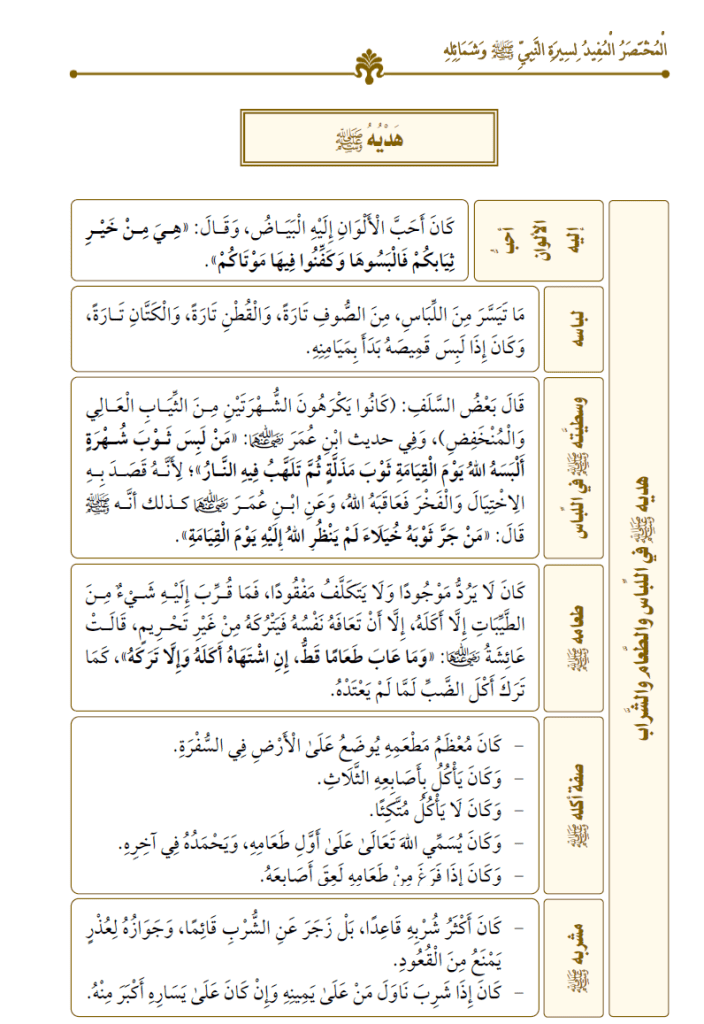 الْمُخْتَصَرُ الْمُفِيدُ لِسِيرَةِ النَّبِيِّ ﷺ وَشَمَائِلِهِ
هَدْيُهُ ﷺ
هديه ﷺ في اللِّباس والطَّعام والشَّراب
أحبُّ
الألوان
إليه
كَانَ أَحَبَّ الْأَلْوَانِ إِلَيْهِ الْبَيَاضُ، وَقَالَ: «هِيَ مِنْ خَيْرِ
ثِيَابِكُمْ فَالْبَسُوهَا وَكَفِّنُوا فِيهَا مَوْتَاكُمْ».
لباسه
مَا تَيَسَّرَ مِنَ اللِّبَاسِ، مِنَ الصُّوفِ تَارَةً، وَالْقُطْنِ تَارَةً، وَالْكَتَّانِ تَارَةً،
وَكَانَ إِذَا لَبِسَ قَمِيصَهُ بَدَأَ بِمَيَامِنِهِ.
وسطيَّته ﷺ في اللباس
قَالَ بَعْضُ السَّلَفِ: (كَانُوا يَكْرَهُونَ الشُّهْرَتَيْنِ مِنَ الثِّيَابِ الْعَالِي
وَالْمُنْخَفِضِ)، وَفِي حديث ابْنِ عُمَرَ رَضِيَ اللهُ عَنْهُمَا: «مَنْ لَبِسَ ثَوْبَ شُهْرَةٍ
أَلْبَسَهُ اللهُ يَوْمَ الْقِيَامَةِ ثَوْبَ مَذَلَّةٍ ثُمَّ تَلَهَّبُ فِيهِ النَّارُ»؛ لِأَنَّهُ قَصَدَ بِهِ
الِاخْتِيَالَ وَالْفَخْرَ فَعَاقَبَهُ اللهُ، وَعَنِ ابْنِ عُمَرَ رَضِيَ اللهُ عَنْهُمَا كذلك أنَّه ﷺ
قَالَ: «مَنْ جَرَّ ثَوْبَهُ خُيَلَاءَ لَمْ يَنْظُرِ اللهُ إِلَيْهِ يَوْمَ الْقِيَامَةِ».
طعامه ﷺ
كَانَ لَا يَرُدُّ مَوْجُودًا وَلَا يَتَكَلَّفُ مَفْقُودًا، فَمَا قُرِّبَ إِلَيْهِ شَيْءٌ مِنَ
الطَّيِّبَاتِ إِلَّا أَكَلَهُ، إِلَّا أَنْ تَعَافَهُ نَفْسُهُ فَيَتْرُكَهُ مِنْ غَيْرِ تَحْرِيمٍ، قَالَتْ
عَائِشَةُ رَضِيَ اللهُ عَنْهَا: «وَمَا عَابَ طَعَامًا قَطُّ، إِنِ اشْتَهَاهُ أَكَلَهُ وَإِلَّا تَرَكَهُ»، كَمَا
تَرَكَ أَكْلَ الضَّبِّ لَمَّا لَمْ يَعْتَدْهُ.
صفة أكله ﷺ
– كَانَ مُعْظَمُ مَطْعَمِهِ يُوضَعُ عَلَىٰ الْأَرْضِ فِي السُّفْرَةِ.
– وَكَانَ يَأْكُلُ بِأَصَابِعِهِ الثَّلَاثِ.
– وَكَانَ لَا يَأْكُلُ مُتَّكِئًا.
– وَكَانَ يُسَمِّي اللهَ تَعَالَىٰ عَلَىٰ أَوَّلِ طَعَامِهِ، وَيَحْمَدُهُ فِي آخِرِهِ.
– وَكَانَ إِذَا فَرَغَ مِنْ طَعَامِهِ لَعِقَ أَصَابِعَهُ.
مشربه ﷺ
– كَانَ أَكْثَرُ شُرْبِهِ قَاعِدًا، بَلْ زَجَرَ عَنِ الشُّرْبِ قَائِمًا، وَجَوَازُهُ لِعُذْرٍ
يَمْنَعُ مِنَ الْقُعُودِ.
– كَانَ إِذَا شَرِبَ نَاوَلَ مَنْ عَلَىٰ يَمِينِهِ وَإِنْ كَانَ عَلَىٰ يَسَارِهِ أَكْبَرَ مِنْهُ.